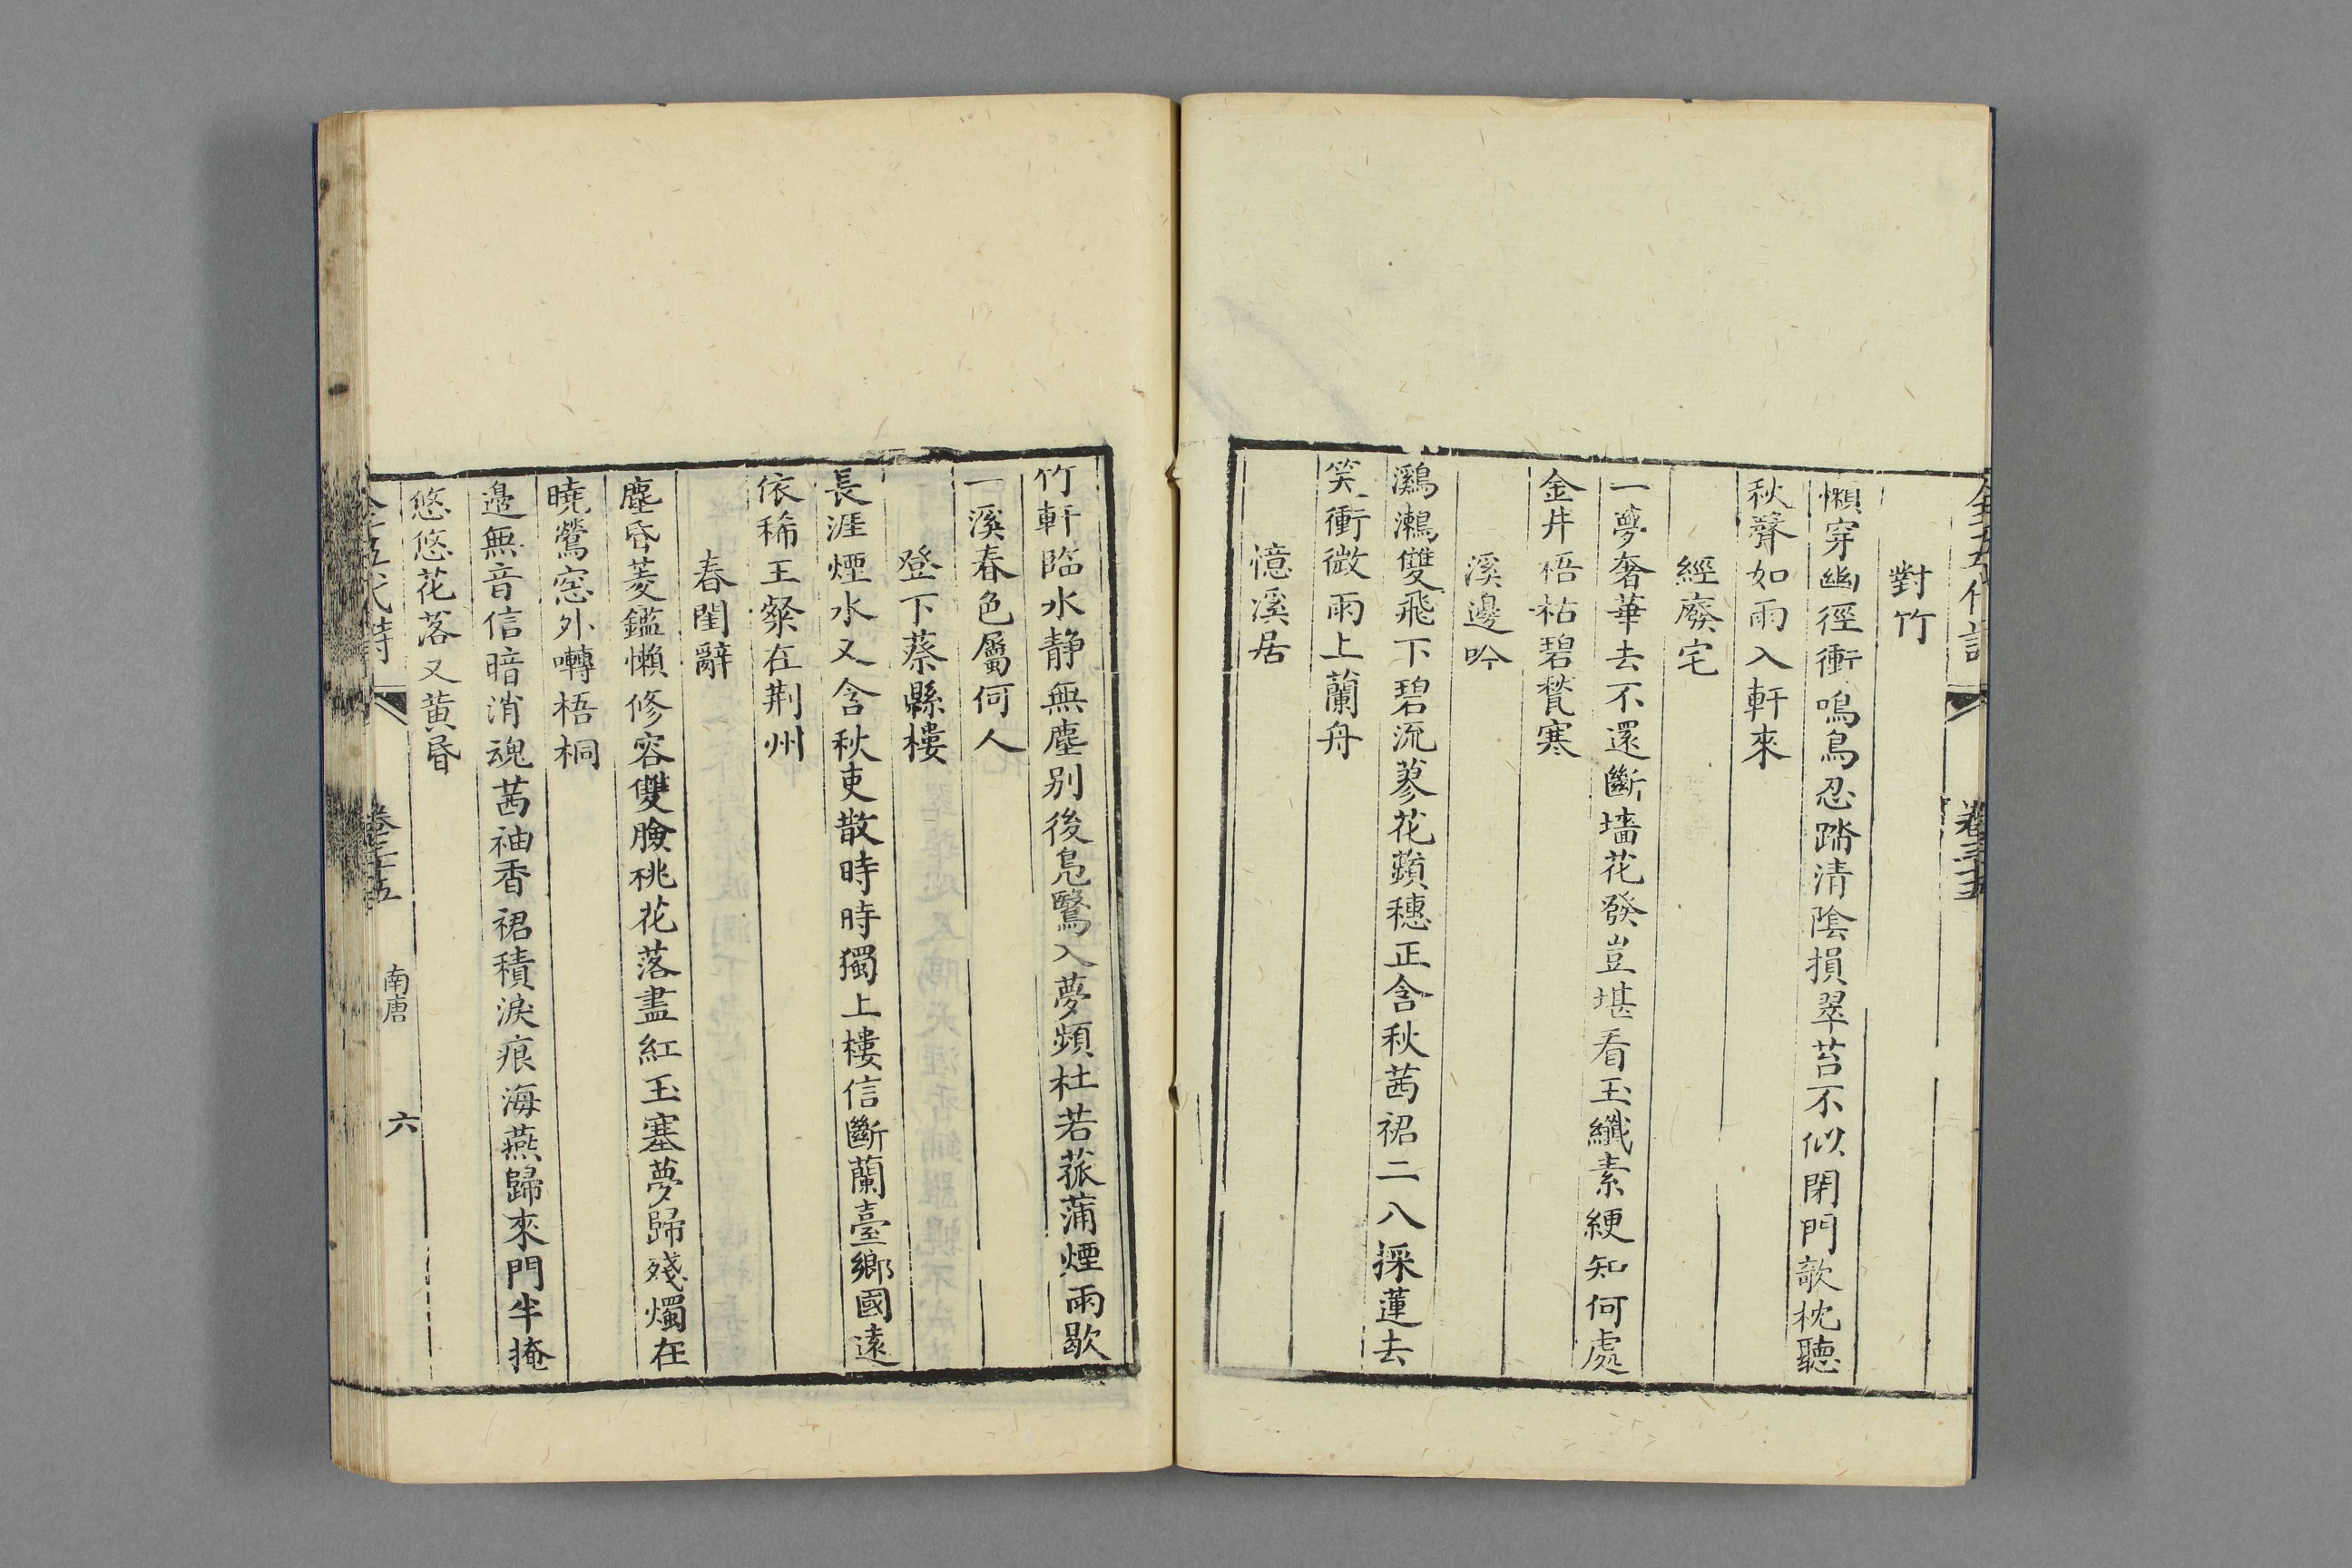 對竹
懶穿幽徑衝鳴鳥忍踏清陰損翠苔不似閉門欹枕聽
秋聲如雨入軒來
經廢宅
一夢奢華去不還斷墻花發豈堪看玉纖素綆知何處
金井梧枯碧甃寒
溪邊吟
鸂鶒雙飛下碧流蓼花蘋穗正含秋茜裙二八採蓮去
笑衝微雨上蘭舟
憶溪居
竹軒臨水静無塵别後鳧鷖入夢頻杜若菰蒲煙雨歇
一溪春色屬何人
登下蔡縣樓
長涯煙水又含秋吏散時時獨上樓信斷蘭臺鄉國遠
依稀王粲在荆州
春閨辭
塵昏菱鑑懶修容雙臉桃花落盡紅玉塞夢歸殘燭在
曉鶯窓外囀梧桐
邉無音信暗消魂茜袖香裙積淚痕海燕歸來門半掩
悠悠花落又黄昏
全五代詩
卷三十五
南唐
六